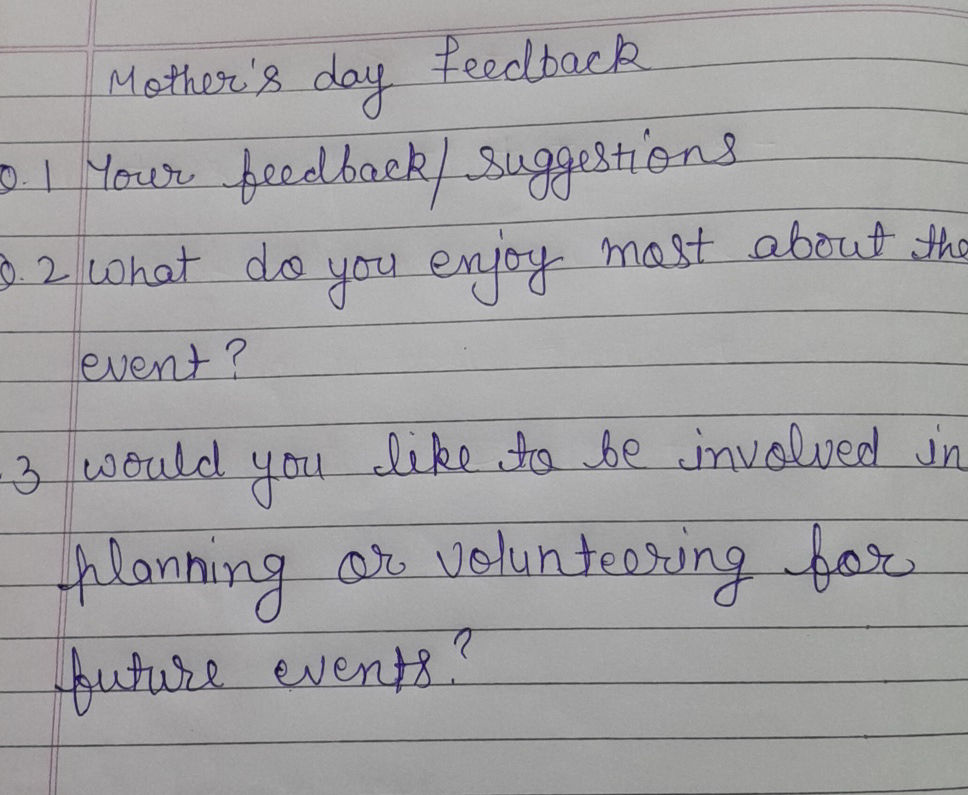 Mother's day feedback
Q.1 Your feedback/suggestions
Q.2 What do you enjoy most about the
event?
.3 would you like to be involved in
planning or volunteering for
future events?